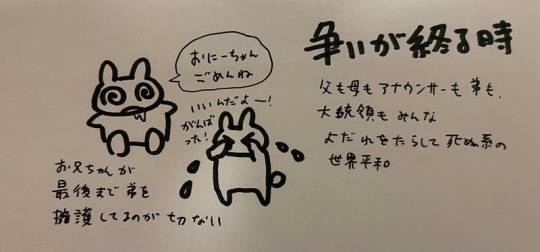 争いが終る時
おにーちゃん
ごめんね
いいんだよー!
がんば
った!
父も母もアナウンサーも弟も、
大統領もみんな
よだれをたらして死ぬ系の
世界平和
お兄ちゃんが
最後まで弟を
擁護してるのが切ない